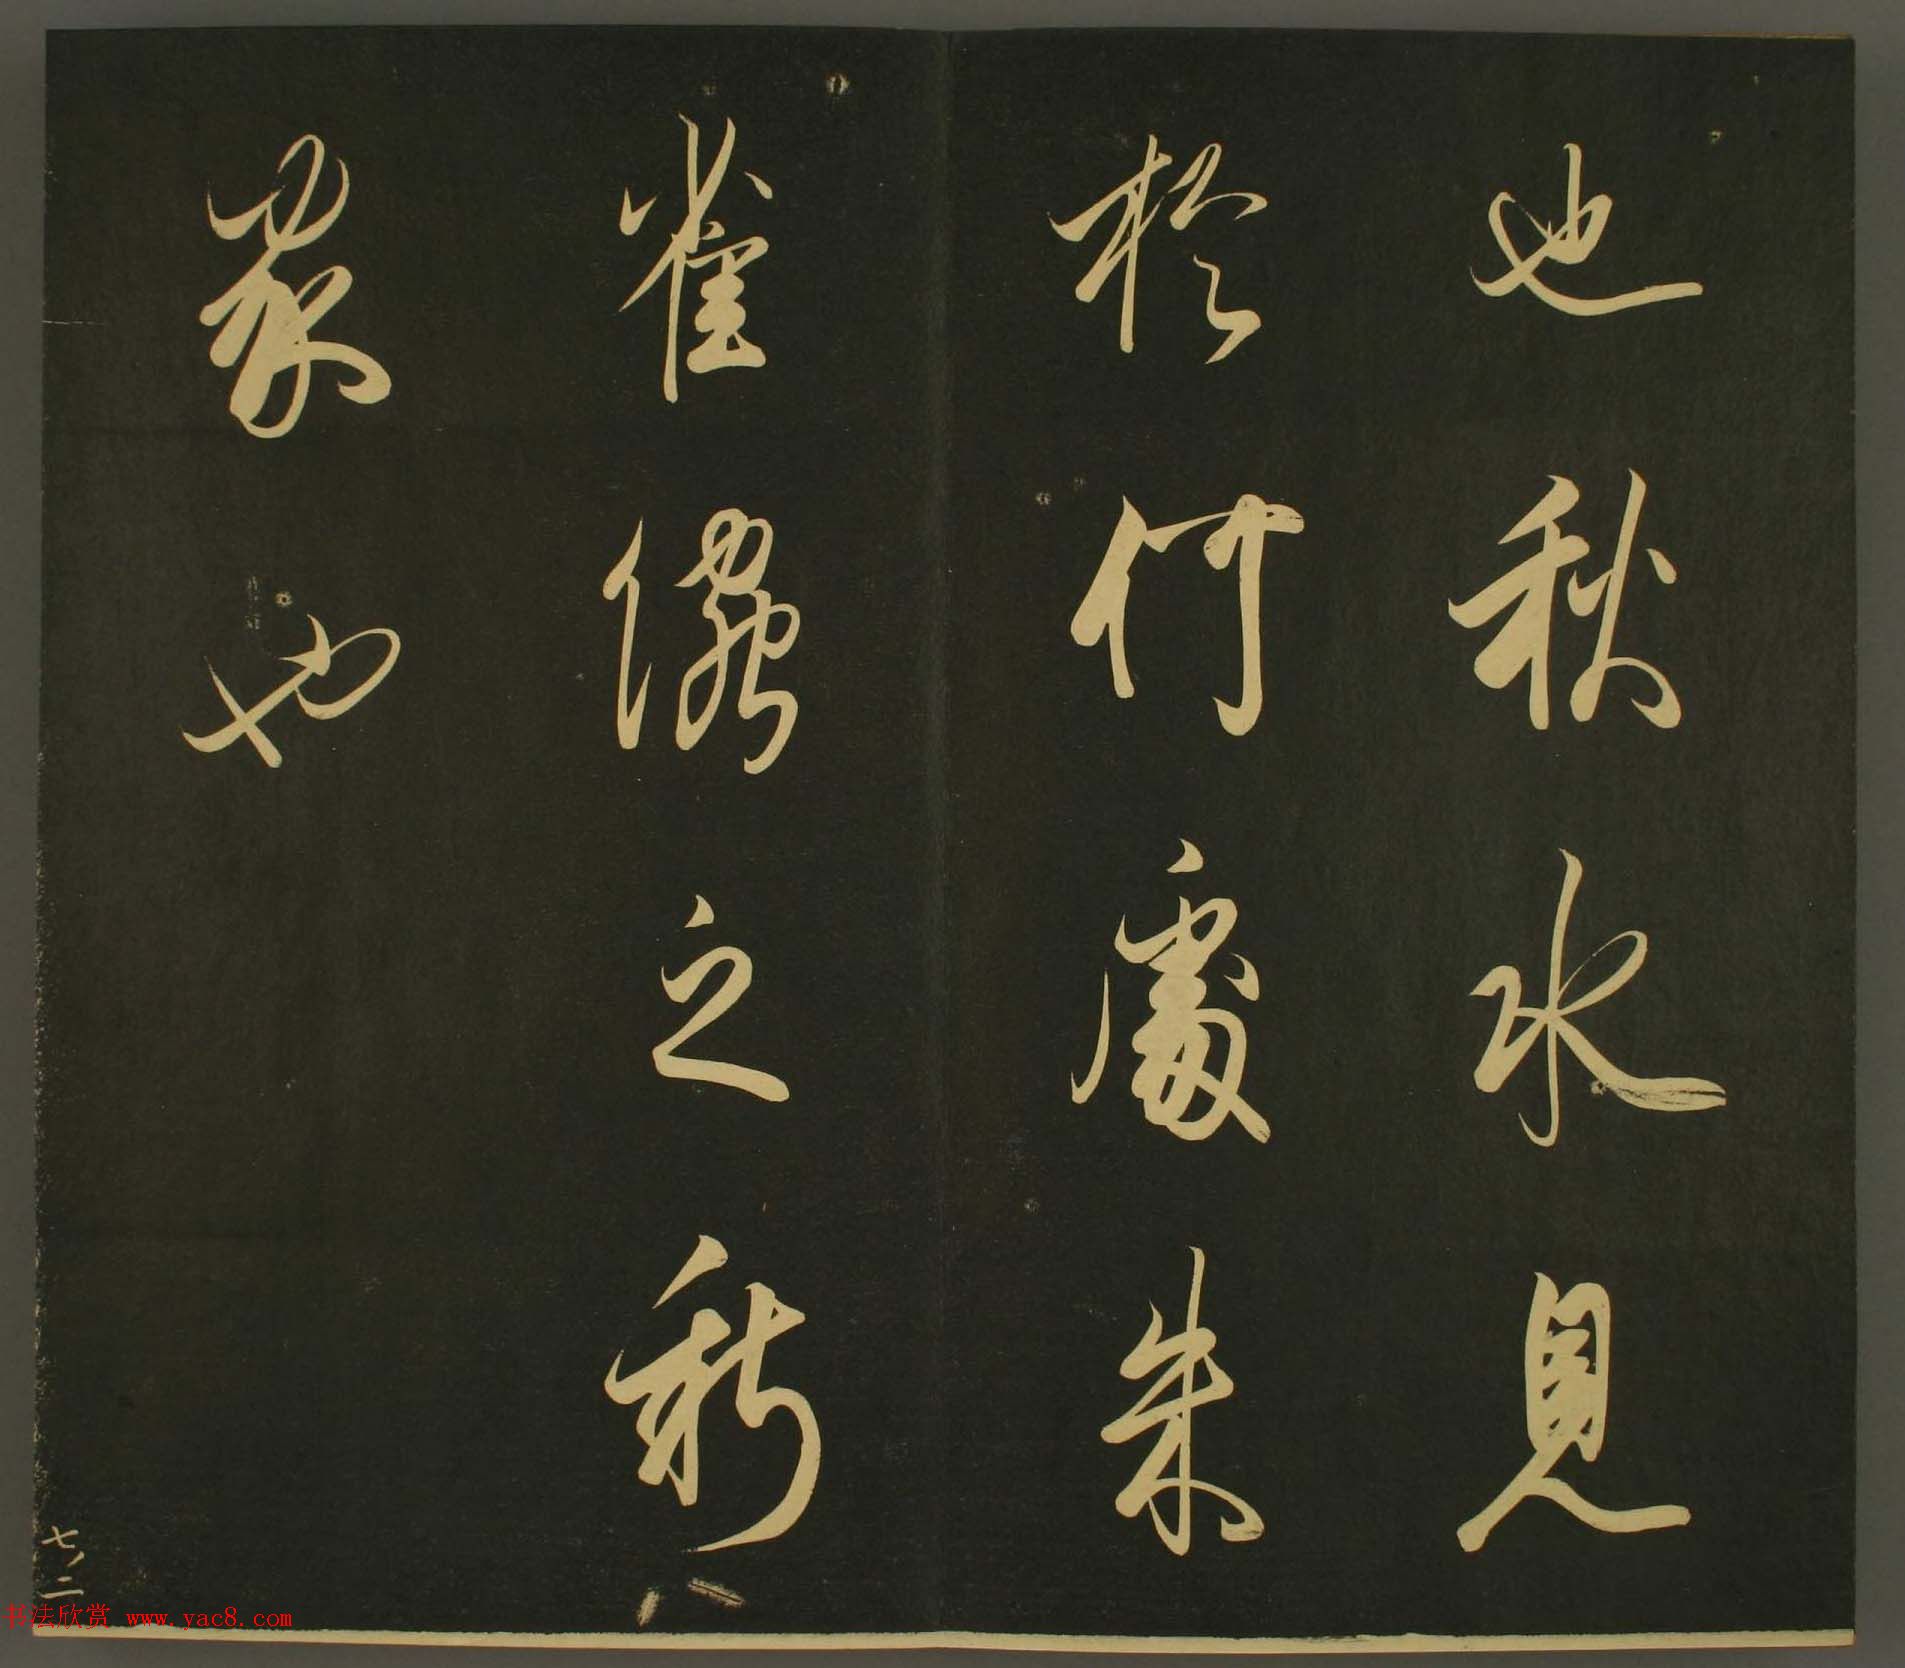 也秋水見
於何處朱
雀之新
也
七、二
书法欣赏 www.yac8.com